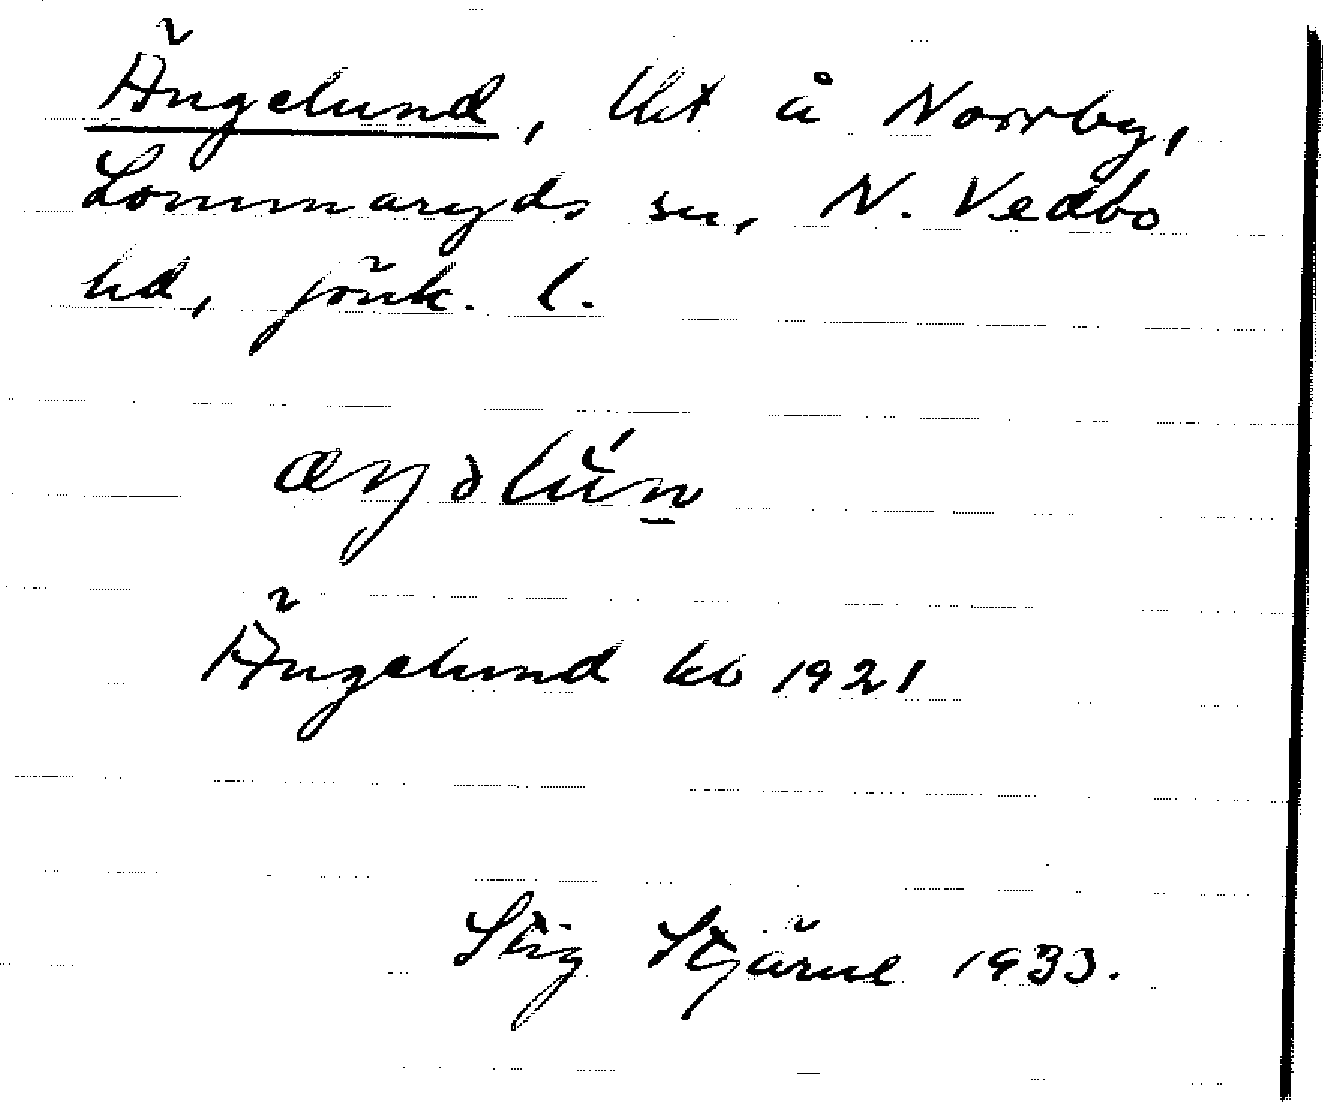 Ängelund, lht å Norrby,
Lommaryds sn, N. Vedbo
hd, Jönk. l.
æŋəlún̠
Ängelund kb 1921
Stig Stjärne 1933.